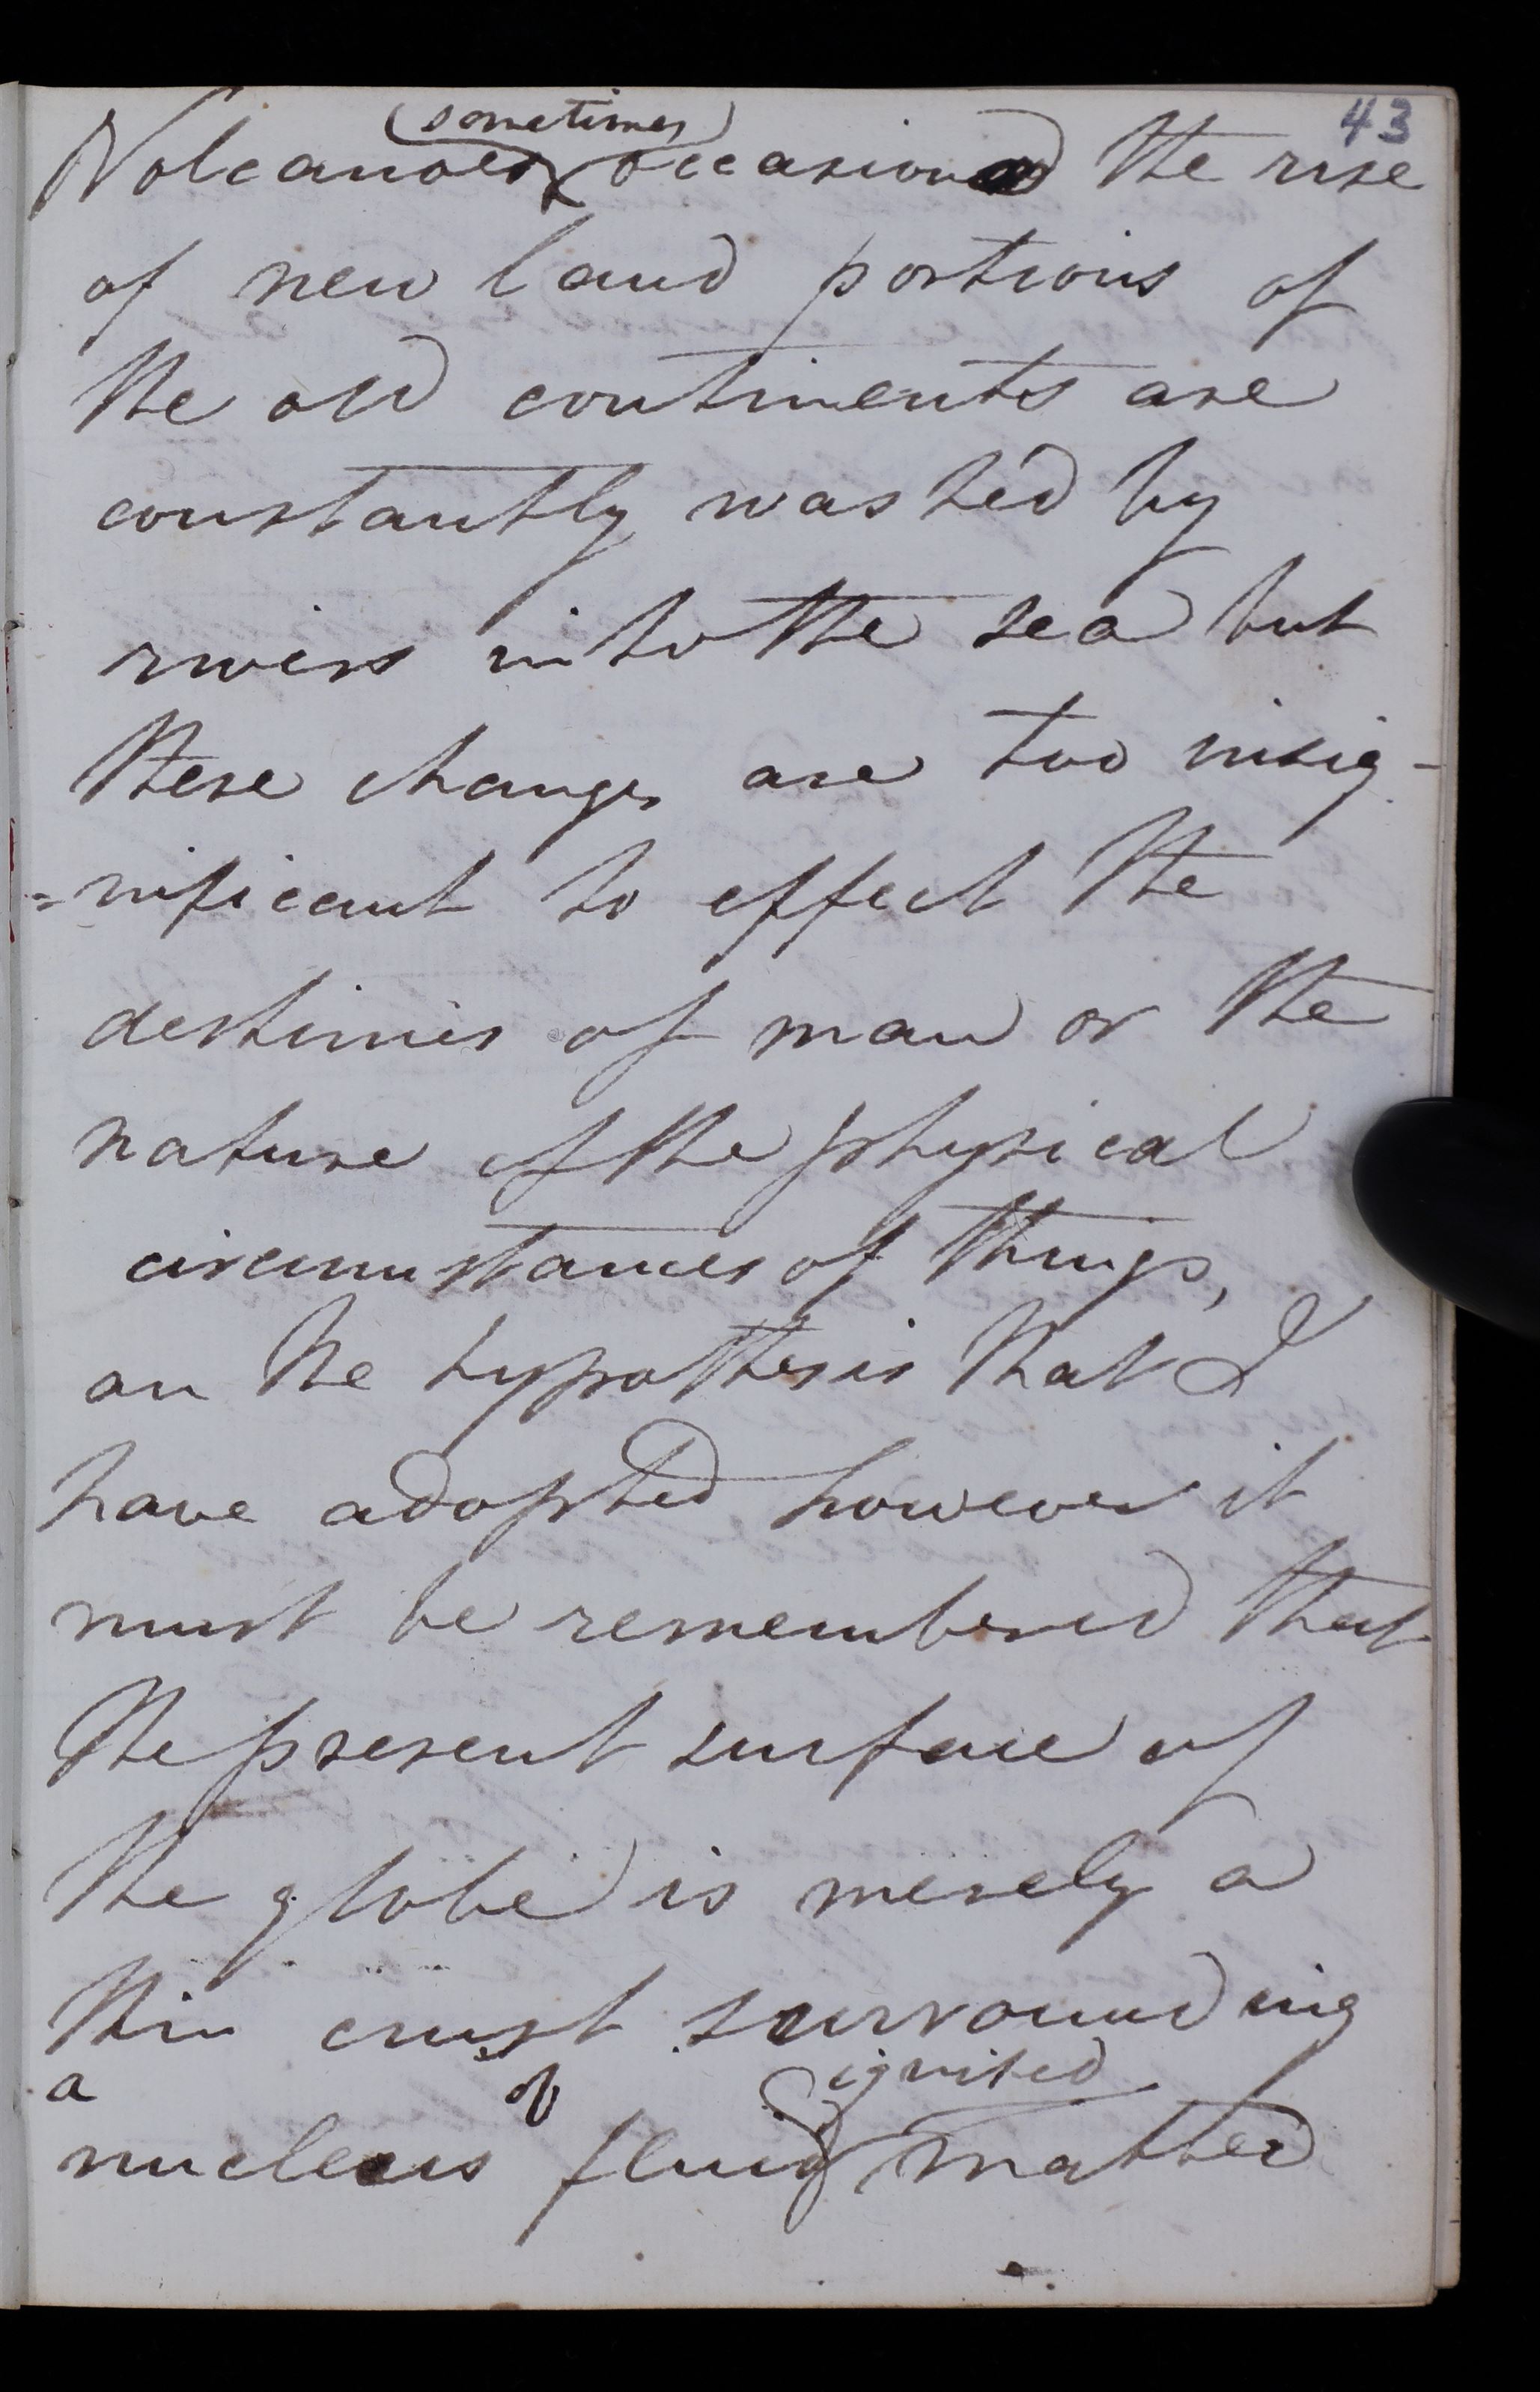 43
sometimes
Volcanoes occasion the rise
of new land portions of
the old continents are
constantly washed by
rivers into the sea but
these changes are too insig-
=nificant to effect the
destinies of man or the
nature of the physical
circumstances of things,
on the hypothesis that I
have adopted however it
must be remembered that
the present surface of
the globe is merely a
thin crust surrounding
a of ignited
nucleus fluid matter